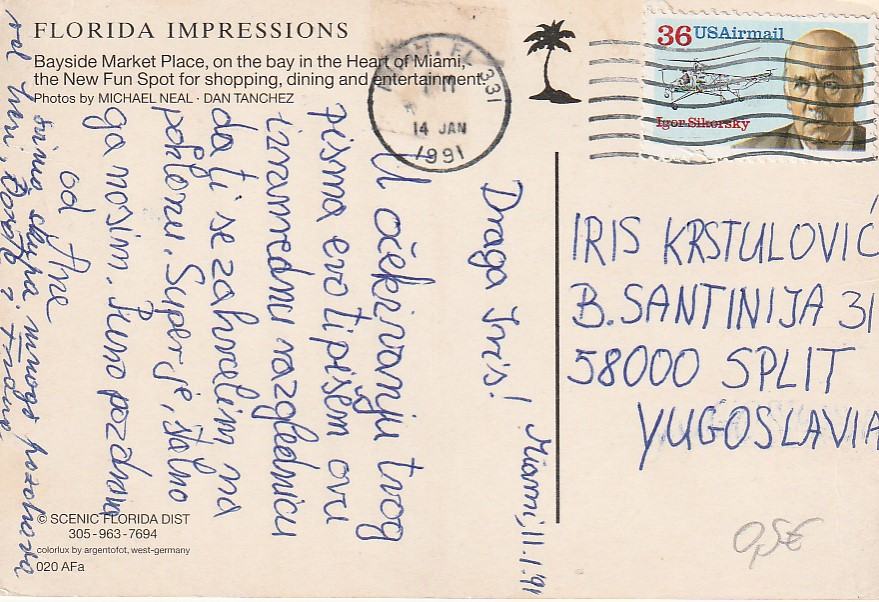 FLORIDA IMPRESSIONS
Bayside Market Place, on the bay in the Heart of Miami,
the New Fun Spot for shopping, dining and entertainment.
Photos by MICHAEL NEAL · DAN TANCHEZ
MIAMI, FL 331
14 JAN
1991
36 USAirmail
Igor Sikorsky
Miami, 11.1.'91
Draga Iris!
U očekivanju tvog
pisma evo ti pišem ovu
izvanrednu razglednicu
da ti se zahvalim na
poklonu. Super je, stalno
ga nosim. Puno pozdrava
od Ane
mnogo pozdrava
IRIS KRSTULOVIĆ
B. SANTINIJA 31
58000 SPLIT
YUGOSLAVIA
© SCENIC FLORIDA DIST
305-963-7694
colorlux by argentofot, west-germany
020 AFa
0,5€